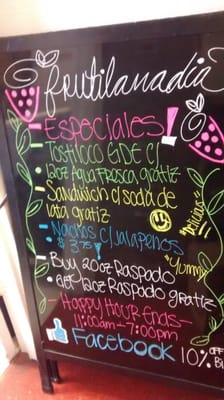 frutilanadia
Especiales!
Tostiloco GDE c/
12oz Agua Fresca gratiz
Sandwich c/ soda de
lata gratiz
Nachos c/ jalapeños
$3.75
Yummy
Buy 20oz Raspado
get 12oz Raspado gratiz
Happy Hour Ends
11:00am-7:00pm
Facebook 10% OFF